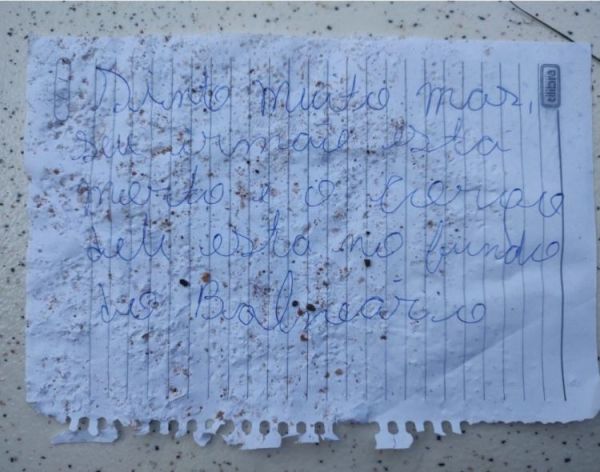 Sinto muito mas,
seu irmao esta
morto e o corpo
dele esta no fundo
do Balneário
tilibra